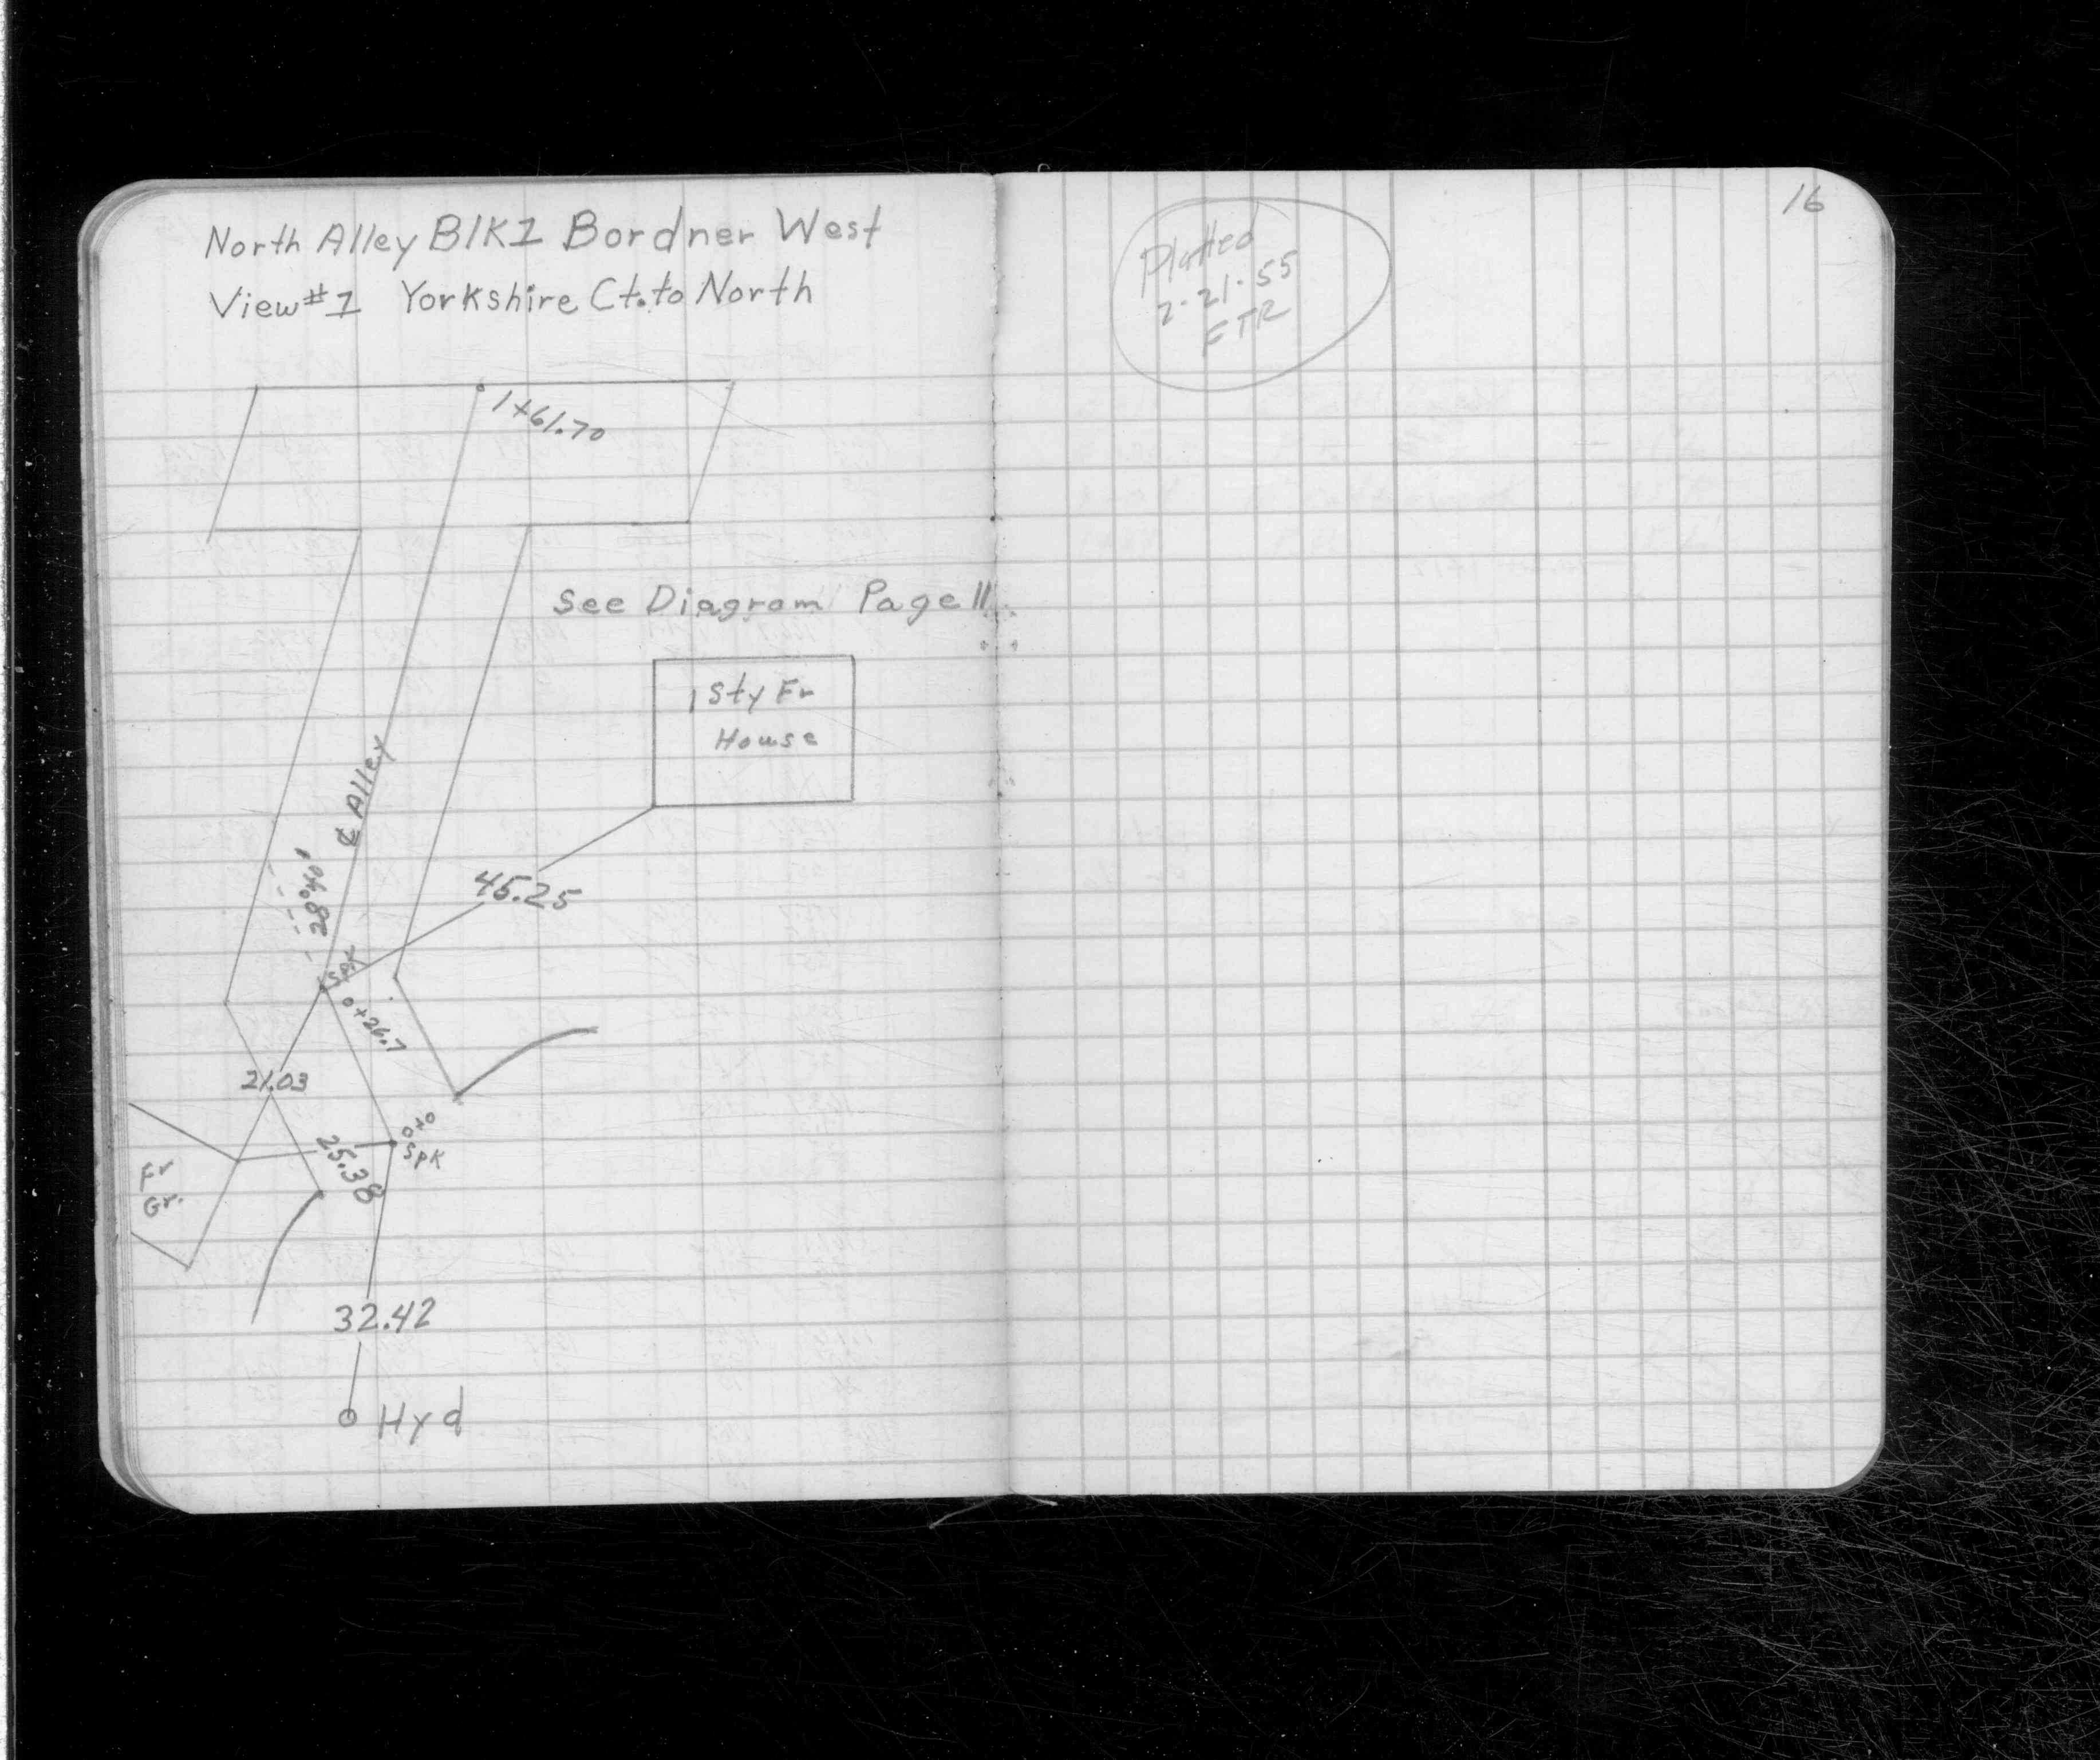 North Alley Blk 1 Bordner West
View #1 Yorkshire Ct. to North
1+61.70
See Diagram Page 11
1 Sty Fr
House
℄ Alley
28°40'
45.25
Spk
0+26.7
21.03
0+0
Spk
25.38
Fr
Gr.
32.42
Hyd
16
Plotted
2-21-55
FTR